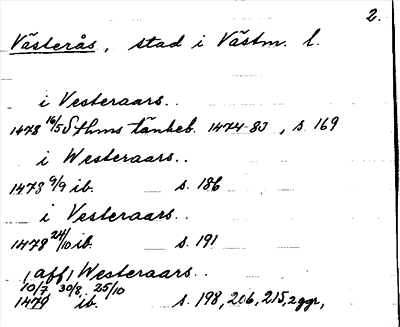 2.
Västerås, stad i Västm. l.
i Vesteraars..
1478 16/5 Sthms tänkeb. 1474-83, s. 169
i Westeraars..
1478 9/9 ib. s. 186
i Vesteraars..
1478 24/10 ib. s. 191
(aff) Westeraars..
10/7 30/8, 25/10
1479 ib. s. 198, 206, 215, 2 ggr,